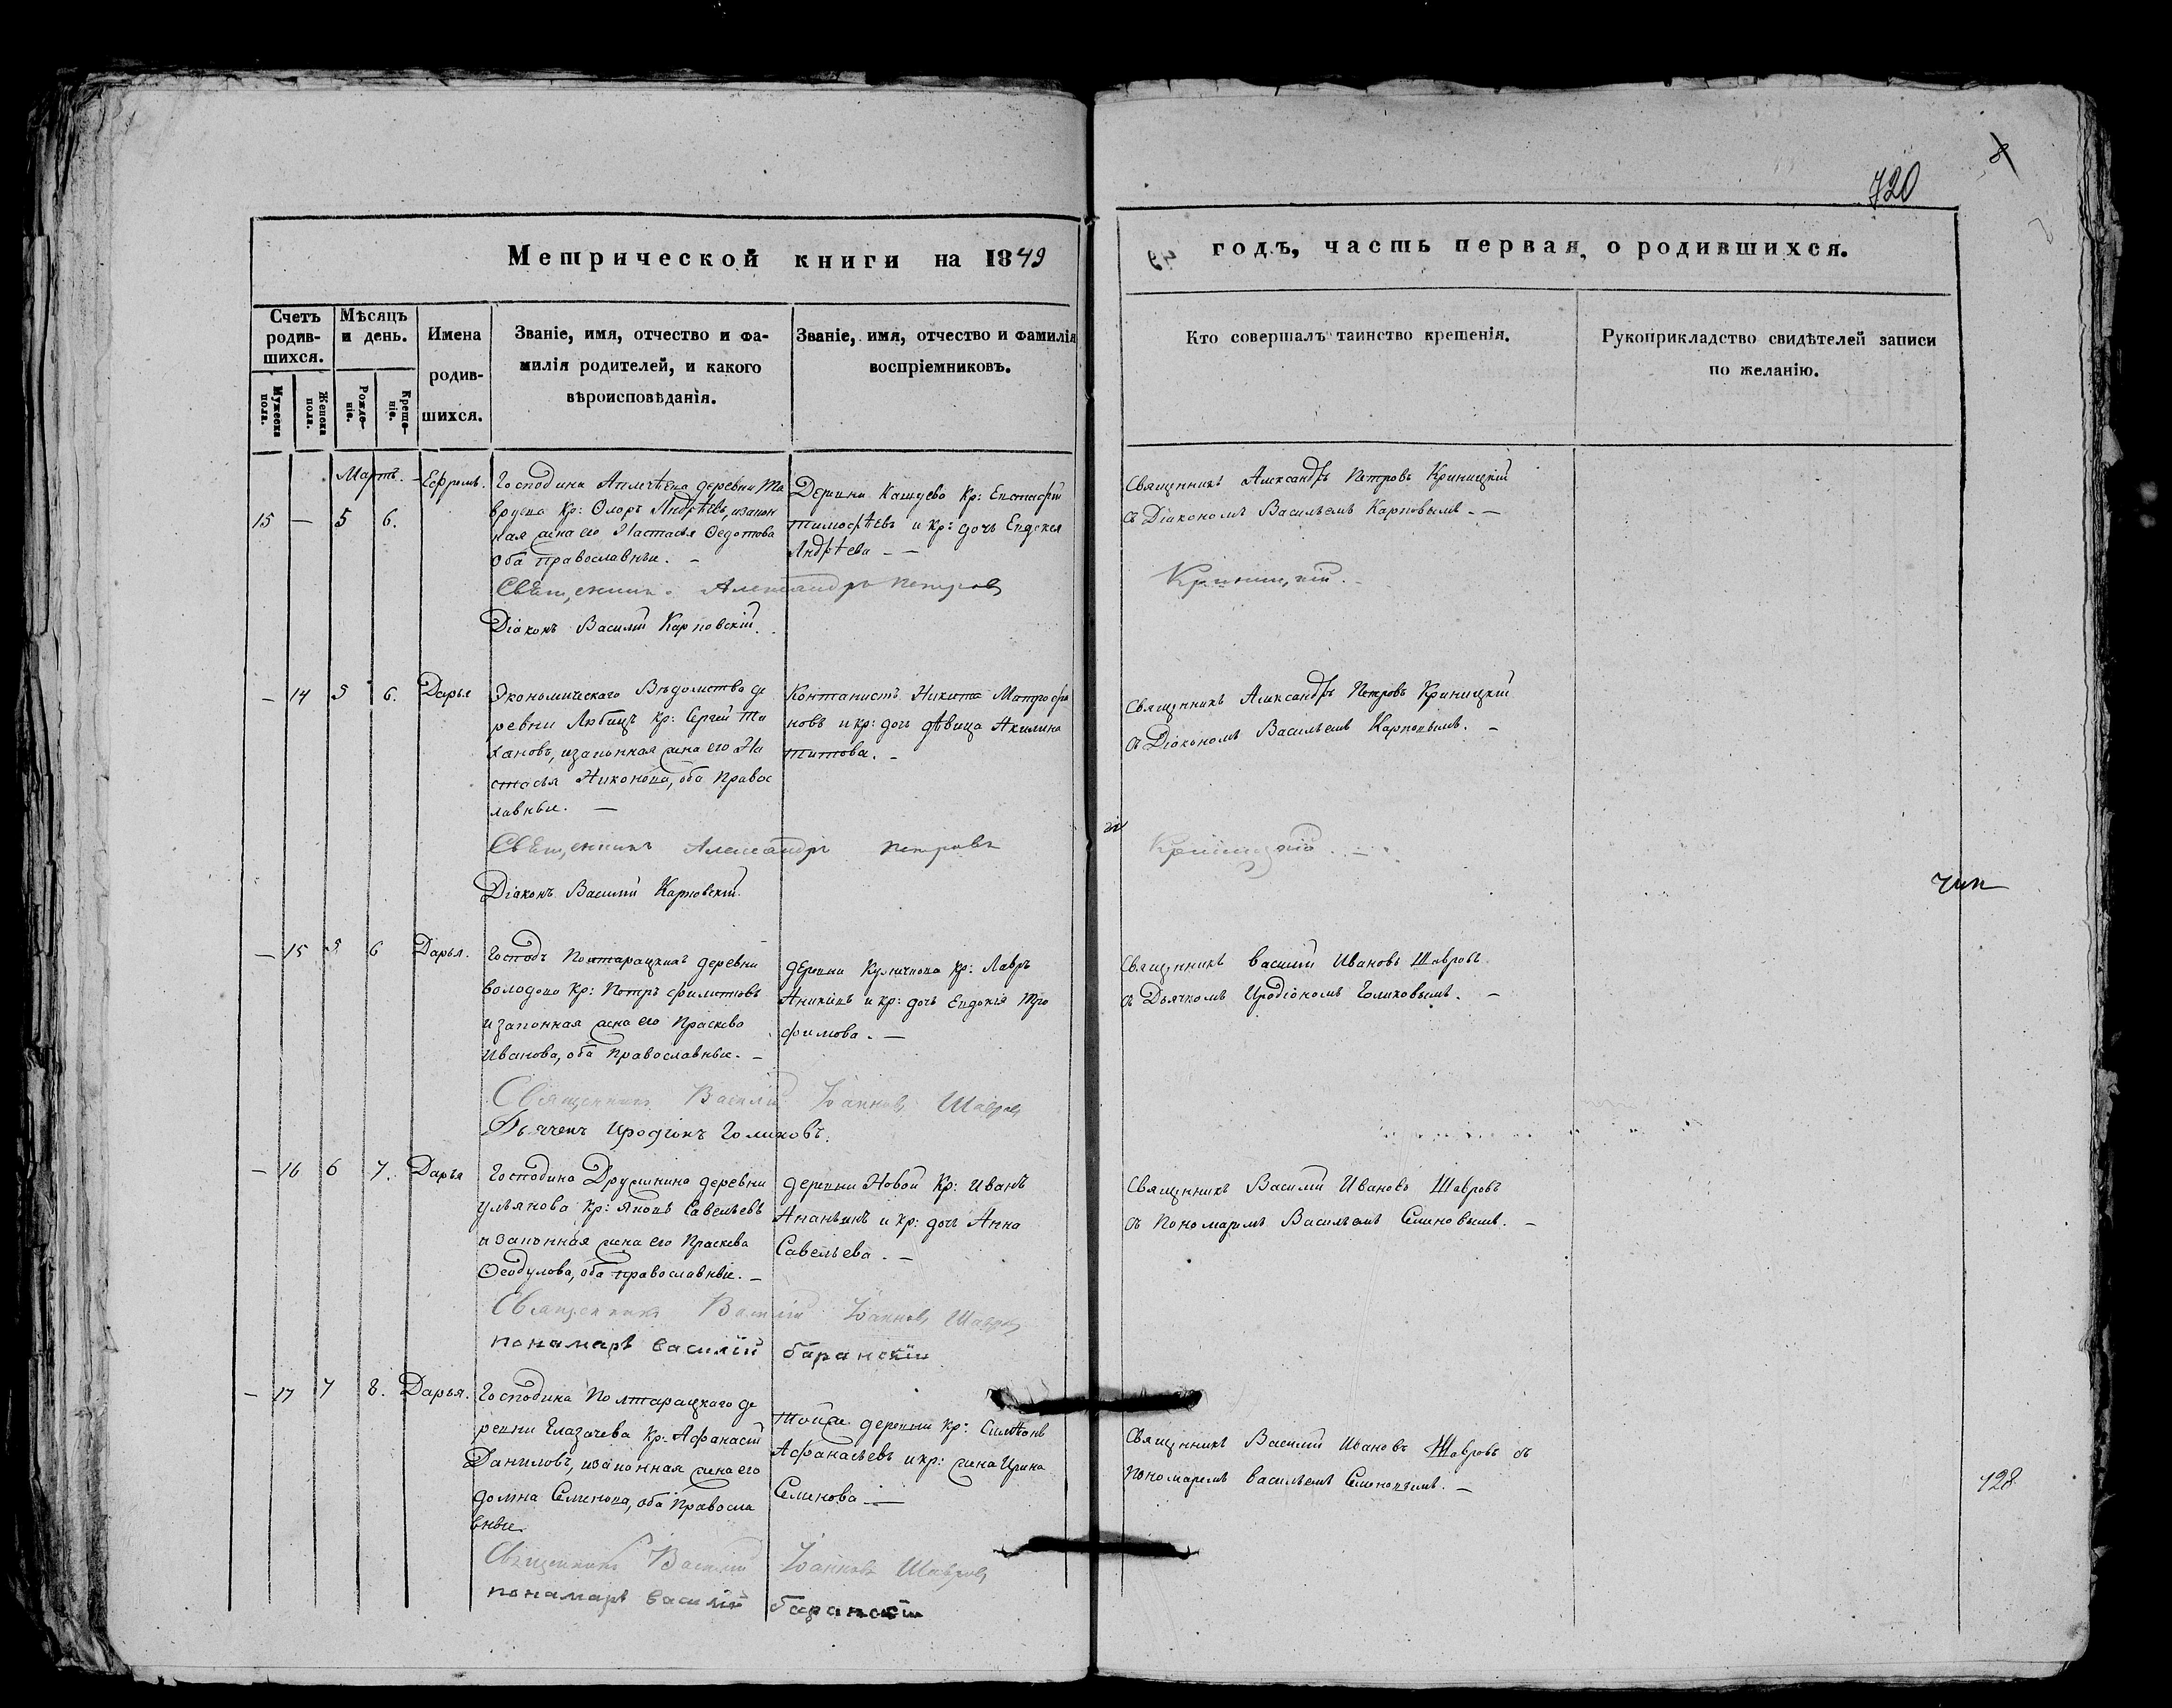 720
8
Метрической книги на 1849
годъ, часть первая, о родившихся.
Счетъ родив-шихся.
Мѣсяцъ и день.
Имена родив-шихся.
Званіе, имя, отчество и фа-
милія родителей, и какого
вѣроисповѣданія.
Званіе, имя, отчество и фамилія
воспріемниковъ.
Кто совершалъ таинство крещенія.
Рукоприкладство свидѣтелей записи
по желанію.
Мужеска пола.
Женска пола.
Рожде-ніе.
Креще-ніе.
Мартъ.
15 — 5 6. Ефремъ.
Господина деревни
Кр: Флоръ Андрѣевъ, изакон
ная жена его Настасья Федотова
оба православные. —
Деревни Кашуево Кр: Евстафій
Тимофѣевъ и кр: дочь Евдокея
Андрѣева — —
Священникъ Александръ Петровъ Криницкій
съ Діакономъ Васильемъ Карповымъ. —
Священникъ Александръ Петровъ
Криницкій. —
Діаконъ Василій Карповскій.
— 14 5 6. Дарья
Экономическаго Вѣдомства де
ревни Любицъ Кр: Сергей Ти
хановъ, изаконная жена его На
стасья Никонова, оба Правос
лавные. —
Контанистъ Никита Митрофа
новъ и кр: дочь дѣвица Акилина
Титова. —
Священникъ Александръ Петровъ Криницкій
съ Діакономъ Васильемъ Карповымъ. —
Священникъ Александръ Петровъ
Криницкій. —
Діаконъ Василій Карповскій.
— 15 5 6 Дарья.
Господъ Полтарацкихъ деревни
Володово Кр: Петръ Филиповъ
изаконная жена его Праскева
Иванова, оба Православные. —
деревни Куличкова Кр: Лавръ
Аникинъ и кр: дочь Евдокія Тро
фимова. —
Священникъ Василій Ивановъ Шавровъ
съ Дьячкомъ Иродіономъ Голиковымъ. —
Священникъ Василій Іоанновъ Шавровъ
Дьячекъ Иродіонъ Голиковъ.
— 16 6 7. Дарья
Господина Дружинина деревни
Ульянова Кр: Яковъ Савельевъ
изаконная жена его Праскева
Феодулова, оба православные. —
деревни Новой Кр: Иванъ
Ананьинъ и кр: дочь Анна
Савельева. —
Священникъ Василій Ивановъ Шавровъ
съ Пономаремъ Васильемъ Семеновымъ. —
Священникъ Василій Іоанновъ Шавровъ
понамарь василій баранскій
— 17 7 8. Дарья.
Господина Полтарацкаго де
ревни Глазачева Кр: Афанасій
Даниловъ, изаконная жена его
домна Семенова, оба Правосла
вные.
Тойже деревни Кр: Симеонъ
Афанасьевъ и кр: жена Ирина
Семенова —
Священникъ Василій Ивановъ Шавровъ съ
Пономаремъ Васильемъ Семеновымъ. —
Священникъ Василій Іоанновъ Шавровъ
понамарь василій баранскій
128